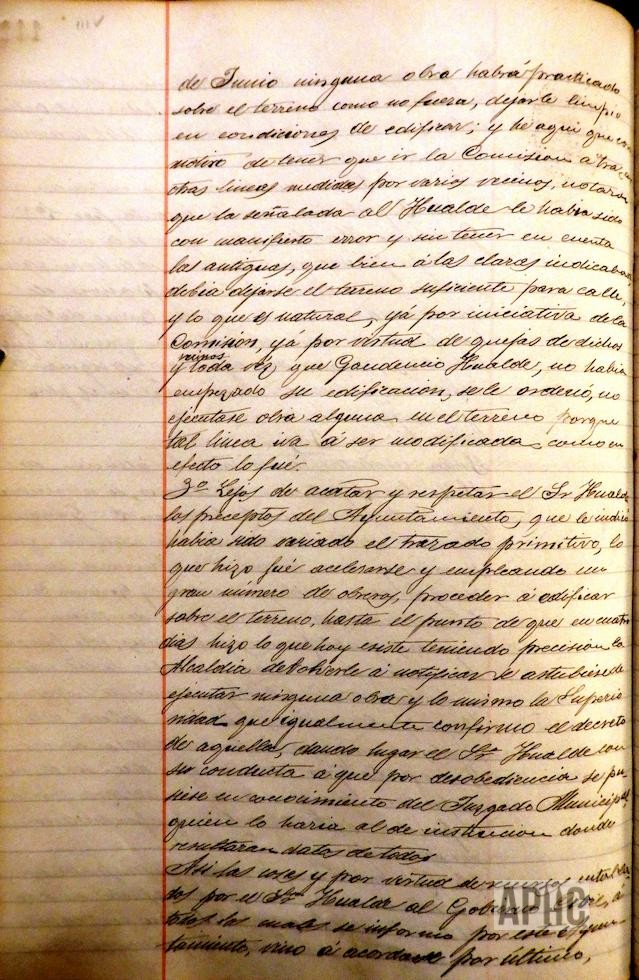 de Junio ninguna obra habrá practicado
sobre el terreno como no fuera, dejarle limpio
en condiciones de edificar; y he aqui que con
motivo de tener que ir la Comision á
otras lineas medidas por varios vecinos, notaron
que la señalada al Hualde le habia sido
con manifiesto error y sin tener en cuenta
las antiguas, que bien á las claras indicaban
debia dejarse el terreno suficiente para calle,
y lo que es natural, yá por iniciativa de la
Comision, ya por virtud de quejas de dichos
vecinos
y toda vez, que Gaudencio Hualde, no habia
empezado su edificacion, se le ordenó, no
ejecutase obra alguna en el terreno porque
tal linea iva á ser modificada como en
efecto lo fué.
3º Lejos de acatar y respetar el Sr Hualde
los preceptos del Ayuntamiento, que le indicó
habia sido variado el trazado primitivo, lo
que hizo fué acelerarse y empleando un
gran número de obreros, proceder á edificar
sobre el terreno, hasta el punto de que en cuatro
dias hizo lo que hoy existe teniendo precision la
Alcaldia de volverle á notificar se
ejecutar ninguna obra y lo mismo la Superio
ridad que igualmente confirmó el decreto
de aquella, dando lugar el Sr Hualde con
su conducta á que por desobediencia se pu
siese en conocimiento del Juzgado Municipal
quien lo haria al de instruccion donde
resultaran datos de todo.
Asi las cosas y por virtud de
dos por el Sr Hualde al Gobierno Civil, á
todos los cuales se informó por este Ayun
tamiento, vino á acordarse por último,
APHC